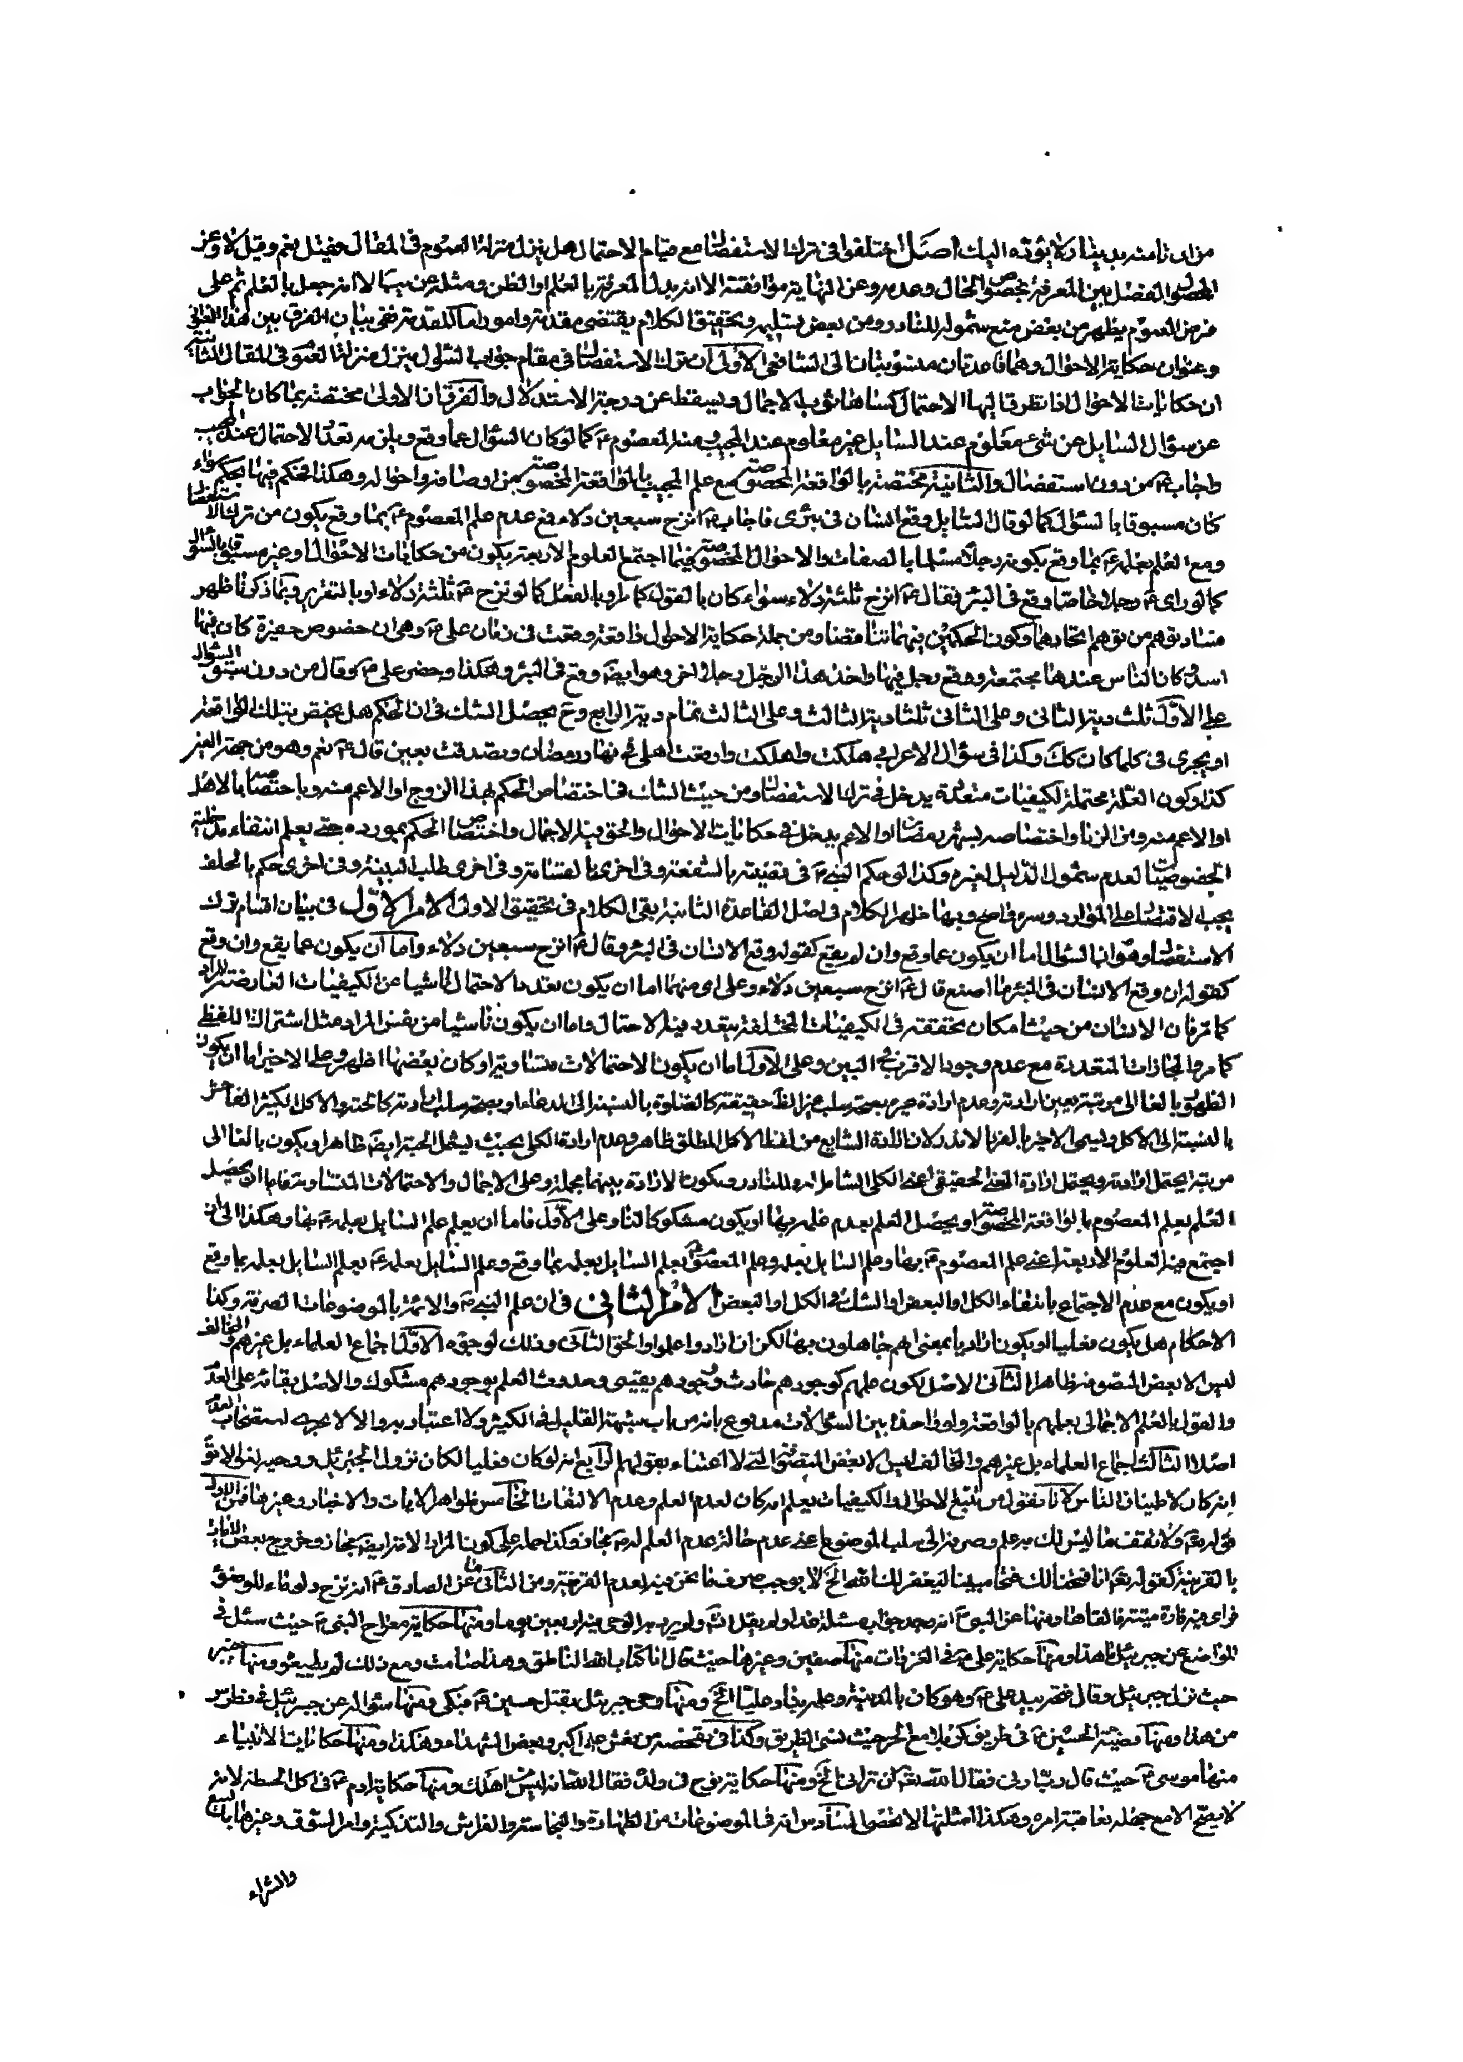 من ان تامنه بدينار لا يؤده اليك اصل اختلفوا فى ترك الاستفصال مع قيام الاحتمال هل ينزل منزلة العموم فى المقال فقيل نعم وقيل لا وعن
المحصول الفصل بين المعرفة بخصوص الحال وعدمه وعن النهاية موافقته الا انه بدل المعرفة بالعلم او الظن ومثله عن الا انه جعل بالعلم ثم على
فرض العموم يظهر من بعض منع شموله للنادر ومن بعض تسليمه وتحقيق الكلام يقتضى مقدمة وامورا اما المقدمة ففى بيان الفرق بين هذا العنوان
وعنوان حكاية الاحوال وهما قاعدتان منسوبتان الى الشافعى الاولى ان ترك الاستفصال فى مقام جواب السؤال ينزل منزلة العموم فى المقال الثانية
ان حكايات الاحوال اذا تطرق اليها الاحتمال كساها ثوب الاجمال وسقط عن درجة الاستدلال والفرق ان الاولى مختصة بما كان الجواب
عن سؤال السايل عن شئ معلوم عند السايل غير معلوم عند المجيب وهذا المعصوم ع كما لو كان السؤال عما وقع ويلزمه تعدد الاحتمال عند المجيب
فاجاب ع من دون استفصال والثانية مختصة بالواقعة المخصوصة مع علم المجيب بالواقعة المخصوصة من اوصافه واحواله وهكذا الحكم فيها بحكم سواء
كان مسبوقا بالسؤال كما لو قال السايل وقع انسان فى بئرى فاجاب ع انزح سبعين دلاء فمع عدم علم المعصوم ع بما وقع يكون من ترك الاستفصال
ومع العلم بعلمه ع بما وقع بكونه رجلا مسلما بالصفات والاحوال المخصوصة فيما اجتمع العلوم الاربعة يكون من حكايات الاحوال او غير مسبوق بالسؤال
كما لو راى ع رجلا خاصا وقع فى البئر فقال ع انزح ثلثة دلاء سواء كان بالقول كما مر او بالفعل كما لو نزح ع ثلثة دلاء او بالتقرير وبما ذكرنا ظهر
فساد توهم من توهم اتحادهما وكون الحكمين فيهما تناقضا ومن جملة حكاية الاحوال واقعة وقعت فى زمان على ع وهى ان خصوص حفيرة كان فيها
اسد كان الناس عندها مجتمعة ووقع رجل فيها واخذ هذا الرجل رجلا اخر وهو ايضا وقع فى البئر وهكذا وحضر على ع وقال من دون سبق السؤال
على الاول ثلث دية الثانى وعلى الثانى ثلثا دية الثالث وعلى الثالث تمام دية الرابع وح يحصل الشك فى ان الحكم هل يختص بتلك الواقعة
او يجرى فى كلما كان كك وكذا فى سؤال الاعرابى هلكت واهلكت واقعت اهلى فى نهار رمضان وتصدقت بعين قال ع نعم وهو من جهة الغير
كذا وكون العلة محتملة لكيفيات متعددة يدخل فى ترك الاستفصال ومن حيث الشك فى اختصاص الحكم بهذا الزوج او الاعم منه وباختصاصه بالاهل
او الاعم منه ومن الزنا واختصاصه بشهر رمضان او الاعم يدخل فى حكايات الاحوال والحق فيه الاجمال واختصاص الحكم بمورده حتى يعلم انتفاء مدخلية
الخصوصيات لعدم شمول الدليل لغيره وكذا لو حكم النبى ص فى قضية بالشفعة وفى اخرى بالقسامة وفى اخرى طلب البينة وفى اخرى حكم بالحلف
يجب الاقتصار على الموارد وسره واضح وبهذا ظهر الكلام فى اصل القاعدة الثانية بقى الكلام فى تحقيق الاولى الامر الاول فى بيان اقسام ترك
الاستفصال وهو ان السؤال اما ان يكون عما وقع وان لم يقع كقوله وقع الانسان فى البئر وقال ع انزح سبعين دلاء واما ان يكون عما يقع وان وقع
كقوله ان وقع الانسان فى البئر ما اصنع قال ع انزح سبعين دلاء وعلى اى منهما اما ان يكون تعدد الاحتمال ناشيا عن الكيفيات العارضة للمراد
كما مر فان الانسان من حيث امكان تحققه فى الكيفيات المختلفة يتعدد فيه الاحتمال واما ان يكون ناشيا من نفس المراد مثل اشتراك اللفظ
كما مر والمجازات المتعددة مع عدم وجود الاقرب فى البين وعلى الاول اما ان يكون الاحتمالات متساوية او كان بعضها اظهر وعلى الاخير اما ان يكون
الظهور بالغا الى مرتبة يعين ارادته وعدم ارادة غيره بصحة سلب غير الظ حقيقة كالصلوة بالنسبة الى الدعاء او بصحة سلب ارادته كالحبة والاكل الكثير الفاحش
بالنسبة الى الاكل ويسمى الاخير بالفرد النادر لان ارادة الشايع من لفظ الاكل المطلق ظاهر وعدم ارادة الكل بحيث يشمل الحبة ايضا ظاهر او يكون بالغا الى
مرتبة يحتمل ارادته ويحتمل ارادة المعنى الحقيقى اعنى الكلى الشامل له وللنادر ويكون الارادة بينهما مجملة وعلى الاجمال والاحتمالات المتساوية فاما ان يحصل
العلم بعلم المعصوم بالواقعة المخصوصة او يحصل العلم بعدم علمه بها او يكون مشكوكا لنا وعلى الاول فاما ان يعلم علم السايل بعلمه ع بها وهكذا الى ان
اجتمع فيه العلوم الاربعة اعنى علم المعصوم ع بها وعلم السايل بعلمه وعلم المعصوم بعلم السايل بعلمه بما وقع وعلم السايل بعلمه ع بعلم السايل بعلمه بما وقع
او يكون مع عدم الاجتماع بانتفاء الكل او البعض او الشك فى الكل او البعض الامر الثانى فى ان علم النبى ص والائمة بالموضوعات الصرفة وكذا
الاحكام هل يكون فعليا او يكون اراديا بمعنى انهم جاهلون بها لكن ان ارادوا علموا والحق الثانى وذلك لوجوه الاول اجماع العلماء بل غيرهم والمخالف
ليس الا بعض المتصوفة ظاهرا الثانى الاصل لكون علمهم كوجودهم حادث وجودهم يقينى وحدوث العلم بوجودهم مشكوك والاصل بقائه على العدم
والقول بالعلم الاجمالى بعلمهم بالواقعة ولو واحدة بين السؤالات مدفوع بانه من باب شبهة القليل فى الكثير ولا اعتبار به والا لا يجرى استصحاب العدم
اصلا الثالث اجماع العلماء بل غيرهم والمخالف ليس الا بعض المتصوفة التى لا اعتناء بقولهم الرابع انه لو كان فعليا لكان نزول الجبرئيل ووحيه لغوا لا يق
انه كان لاطمينان الناس لانا نقول من تتبع الاحوال والكيفيات يعلم انه كان لعدم العلم وعدم الالتفات الخامس ظواهر الايات والاخبار وغيرها فمن الاول
قوله تع ولا تقف ما ليس لك به علم وصرفه الى سلب الموضوع اعنى عدم حالة عدم العلم له ع مجاز وكذا حمله على كون المراد الامة ايضا مجاز وخروج بعض الايات
بالقرينة كقوله تع انا فتحنا لك فتحا مبينا ليغفر لك الله الخ لا يوجب صرف ما نحن فيه لعدم القرينة ومن الثانى ما عن الصادق ع انه نزح دلو ماء للوضوء
فراى فيه فارة ميتة فالقاها ومنها عن النبى ص انه وعد جواب مسئلة غدا ولم يقل انش ولم ير به الوحى فيه اربعين يوما ومنها حكاية معراج النبى ص حيث سئل فى
المواضع عن جبرئيل ما هذا ومنها حكاية على ع فى الغزوات منها صفين وغيرها حيث قال انا كتاب الله الناطق وهذا صامت ومع ذلك لم يطيعوه ومنها خيبر
حيث نزل جبرئيل وقال فتحه بيد على ع وهو كان بالمدينة وعلمه بناد عليا الخ ومنها وحى جبرئيل بقتل حسين ع فبكى ومنها سؤاله عن جبرئيل فى فطرس
من هذا ومنها قضية الحسين ع فى طريق كربلا مع الحر حيث نسى الطريق وكذا فى تفحصه من نعش على اكبر وبعض الشهداء وهكذا ومنها حكايات الانبياء
منها موسى ع حيث قال رب ارنى فقال الله تعه لن ترانى الخ ومنها حكاية نوح فى ولده فقال الله انه ليس من اهلك ومنها حكاية ادم ع فى اكل الحنطة لانه
لا يصح الا مع جهله بعاقبة امره وهكذا امثلتها لا تحصى السادس انه فى الموضوعات من الطهارة والنجاسة والفراش والتذكية وامر السوق وغيرها باب البيع
والشراء